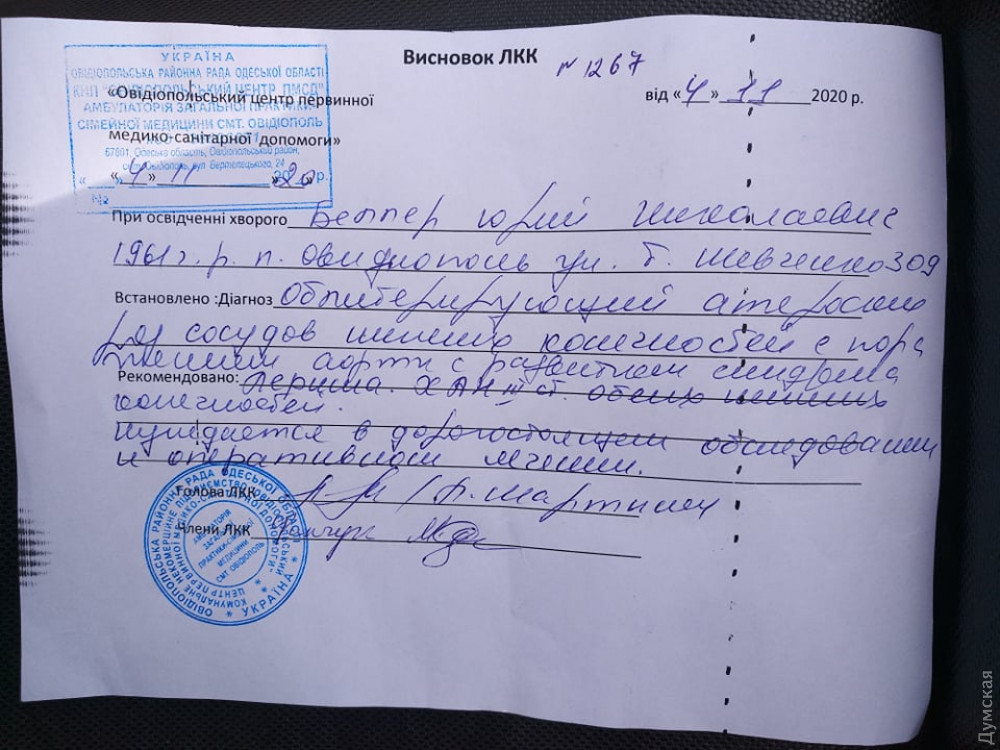 Висновок ЛКК
№ 1267
УКРАЇНА
ОВІДІОПОЛЬСЬКА РАЙОННА РАДА ОДЕСЬКОЇ ОБЛАСТІ
КНП "ОВІДІОПОЛЬСЬКИЙ ЦЕНТР ПМСД"
«Овідіопольський центр первинної
від «4» 11 2020 р.
АМБУЛАТОРІЯ ЗАГАЛЬНОЇ ПРАКТИКИ
СІМЕЙНОЇ МЕДИЦИНИ СМТ. ОВІДІОПОЛЬ
медико-санітарної допомоги»
67801, Одеська область, Овідіопольський район,
смт. Овідіополь, вул. Вертелецького, 24
«4» 11 2020 р.
№
При освідченні хворого Беппер Юрий Николаевич
1961 г.р. п. Овидиополь ул. Т. Шевченко 309
Встановлено :Діагноз Облитерирующий атероскле
роз сосудов нижних конечностей с пора
жением аорты с развитием синдрома
Рекомендовано: Лериша. ХАН III ст. обеих нижних
конечностей.
нуждается в дорогостоящем обследовании
и оперативном лечении.
Голова ЛКК
Члени ЛКК
ОВІДІОПОЛЬСЬКА РАЙОННА РАДА ОДЕСЬКОЇ ОБЛАСТІ
УКРАЇНА
КОМУНАЛЬНЕ НЕКОМЕРЦІЙНЕ ПІДПРИЄМСТВО "ОВІДІОПОЛЬСЬКИЙ
ЦЕНТР ПЕРВИННОЇ МЕДИКО-САНІТАРНОЇ ДОПОМОГИ"
АМБУЛАТОРІЯ
ЗАГАЛЬНОЇ
ПРАКТИКИ-СІМЕЙНОЇ
МЕДИЦИНИ
СМТ. ОВІДІОПОЛЬ
Думская